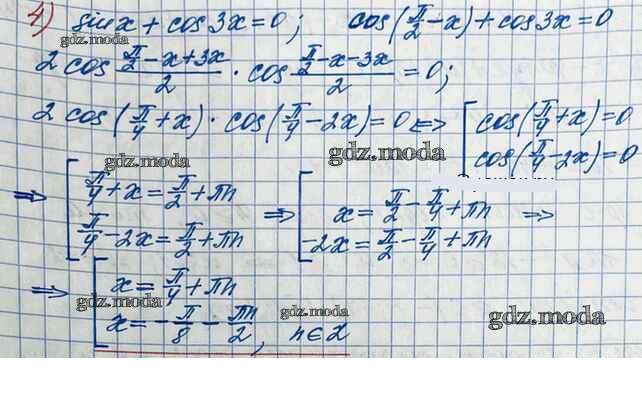 4) sin x + cos 3x = 0; cos(π/2 - x) + cos 3x = 0
gdz.moda
2 cos (π/2 - x + 3x)/2 · cos (π/2 - x - 3x)/2 = 0;
2 cos(π/4 + x) · cos(π/4 - 2x) = 0 <=> [ cos(π/4 + x) = 0
cos(π/4 - 2x) = 0
gdz.moda
gdz.moda
=> [ π/4 + x = π/2 + πn => [ x = π/2 - π/4 + πn =>
π/4 - 2x = π/2 + πn -2x = π/2 - π/4 + πn
=> [ x = π/4 + πn
gdz.moda
gdz.moda
gdz.moda
x = - π/8 - πn/2, n∈Z